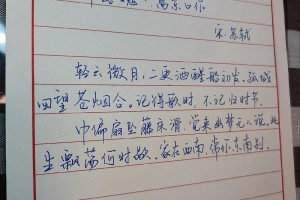 离京口作
宋.苏轼
轻云微月,二更酒醒船初发。孤城
回望苍烟合。记得歌时,不记归时节。
巾偏扇坠藤床滑,觉来幽梦无人说。此
生飘荡何时歇,家在西南,常作东南别。